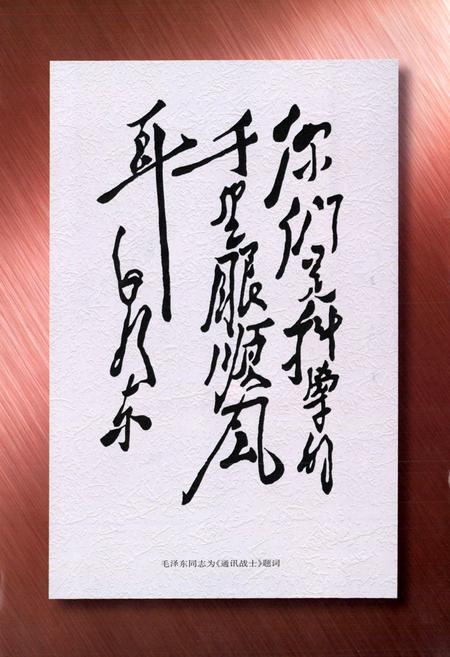 你们是科学的
千里眼顺风
耳 毛泽东
毛泽东同志为《通讯战士》题词